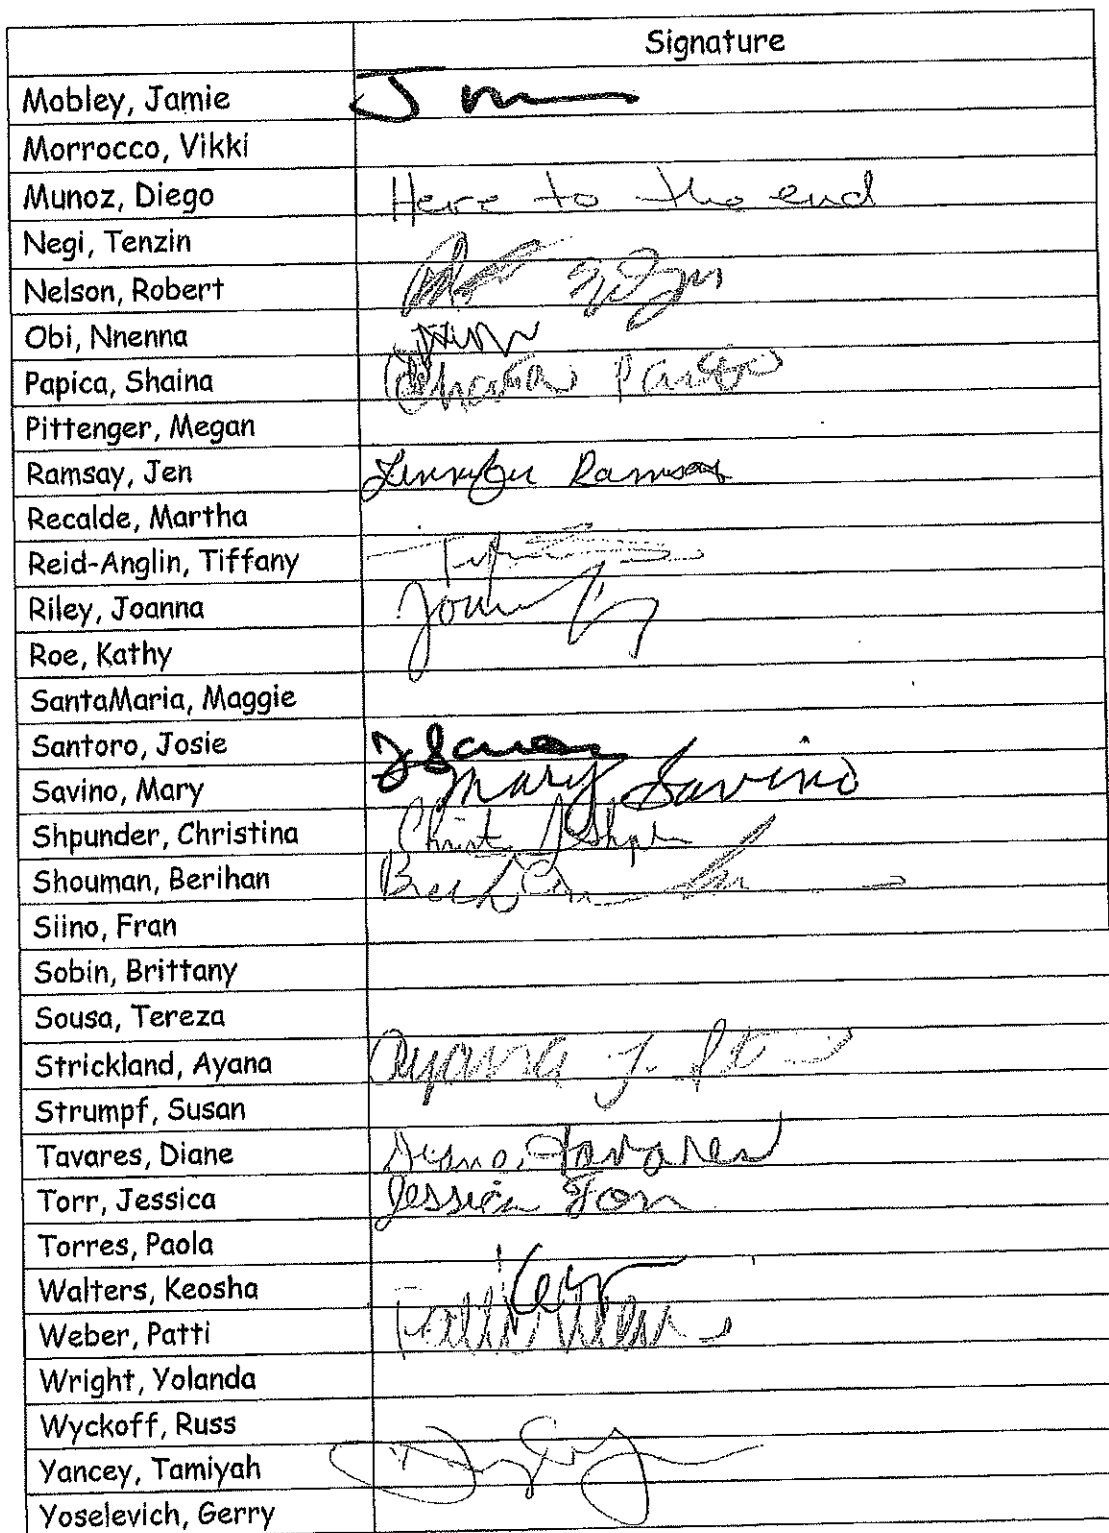 Signature
Mobley, Jamie J m
Morrocco, Vikki
Munoz, Diego Here to the end
Negi, Tenzin
Nelson, Robert
Obi, Nnenna
Papica, Shaina Shaina
Pittenger, Megan
Ramsay, Jen Jennifer Ramsay
Recalde, Martha
Reid-Anglin, Tiffany
Riley, Joanna
Roe, Kathy
SantaMaria, Maggie
Santoro, Josie
Savino, Mary Mary Savino
Shpunder, Christina
Shouman, Berihan
Siino, Fran
Sobin, Brittany
Sousa, Tereza
Strickland, Ayana Ayana J.
Strumpf, Susan
Tavares, Diane Diane Tavares
Torr, Jessica Jessica Torr
Torres, Paola
Walters, Keosha
Weber, Patti
Wright, Yolanda
Wyckoff, Russ
Yancey, Tamiyah
Yoselevich, Gerry